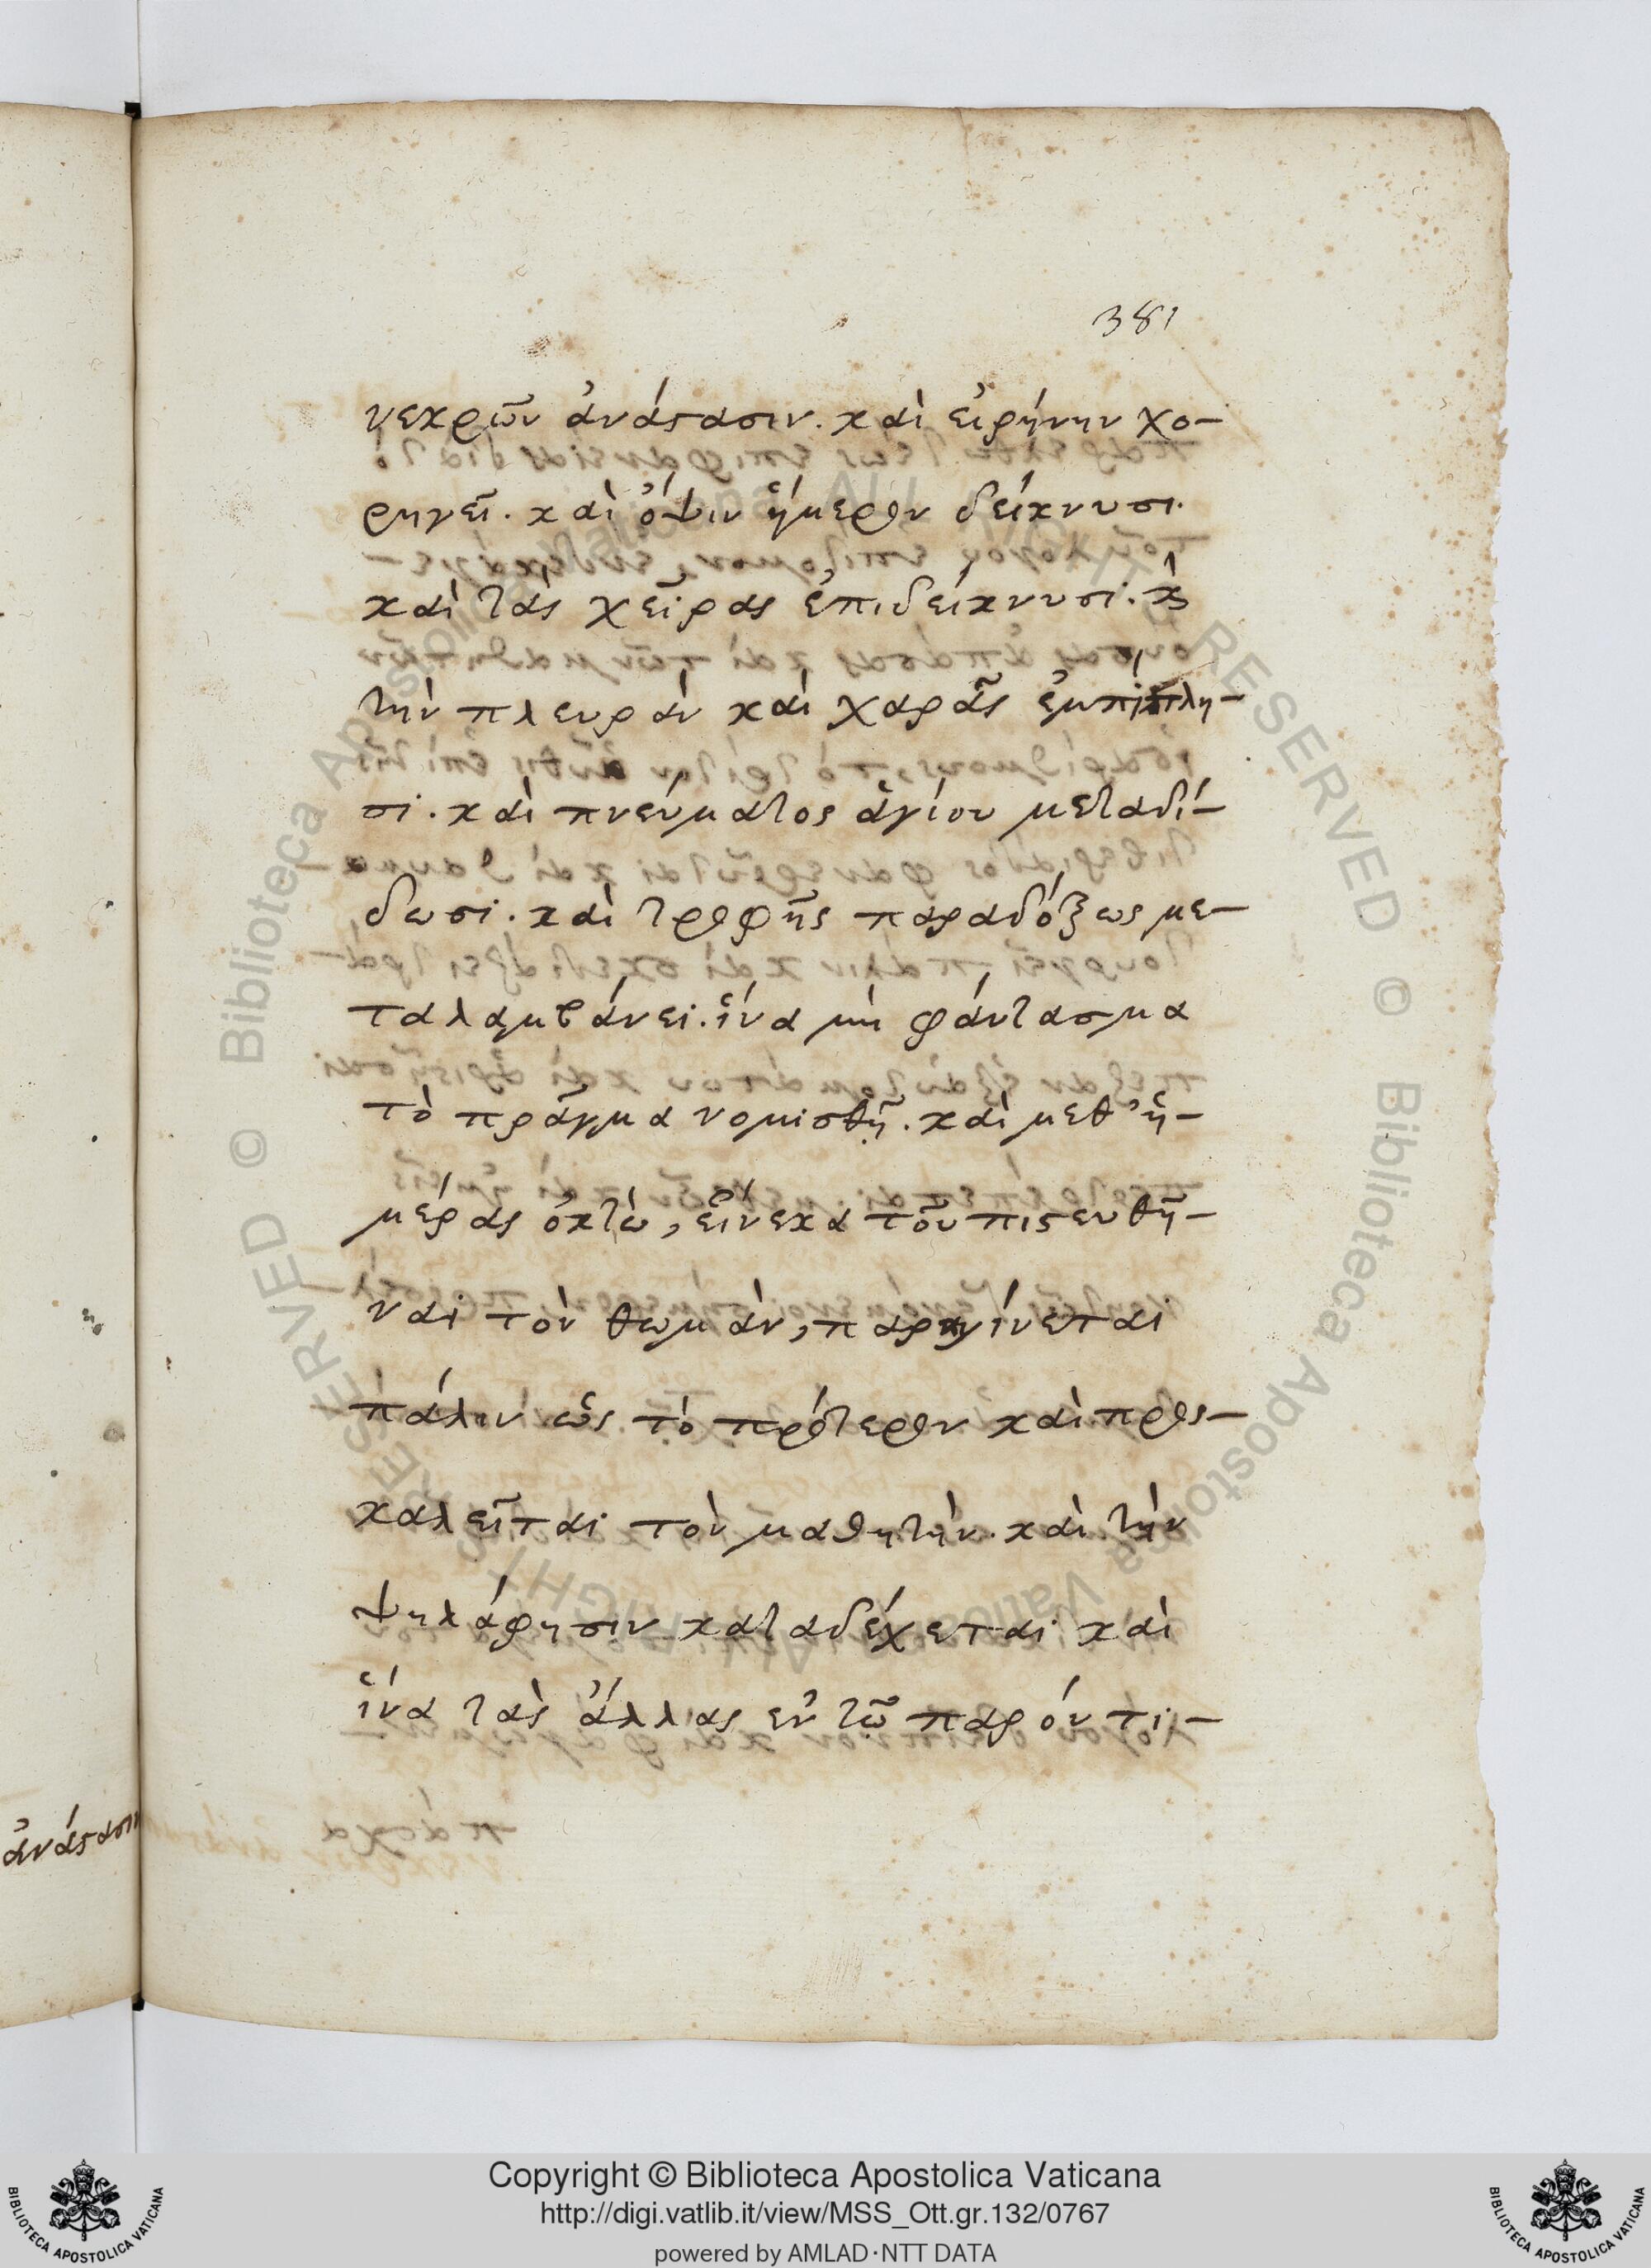 381
νεκρῶν ἀνάστασιν. καὶ εἰρήνην χο-
ρηγεῖ. καὶ ὄψιν ἥμερον δείκνυσι.
καὶ τὰς χεῖρας ἐπιδείκνυσι. κ̀
τὴν πλευρὰν καὶ χαρᾶς ἐμπίπλη-
σι. καὶ πνεύματος ἁγίου μεταδί-
δωσι. καὶ τροφῆς παραδόξως με-
ταλαμβάνει. ἵνα μὴ φάντασμα
τὸ πρᾶγμα νομισθῇ. καὶ μεθ' ἡ-
μέρας ὀκτὼ, εἵνεκα τοῦ πιστευθῆ-
ναι τὸν θωμὰν, παραγίνεται
πάλιν ὡς τὸ πρότερον καὶ προς-
καλεῖται τὸν μαθητὴν. καὶ τὴν
ψηλάφησιν καταδέχεται καὶ
ἵνα τὰς ἄλλας ἐν τῷ παρόντι-
ἀνάστασιν
Copyright © Biblioteca Apostolica Vaticana
http://digi.vatlib.it/view/MSS_Ott.gr.132/0767
powered by AMLAD·NTT DATA
BIBLIOTECA APOSTOLICA VATICANA
BIBLIOTECA APOSTOLICA VATICANA